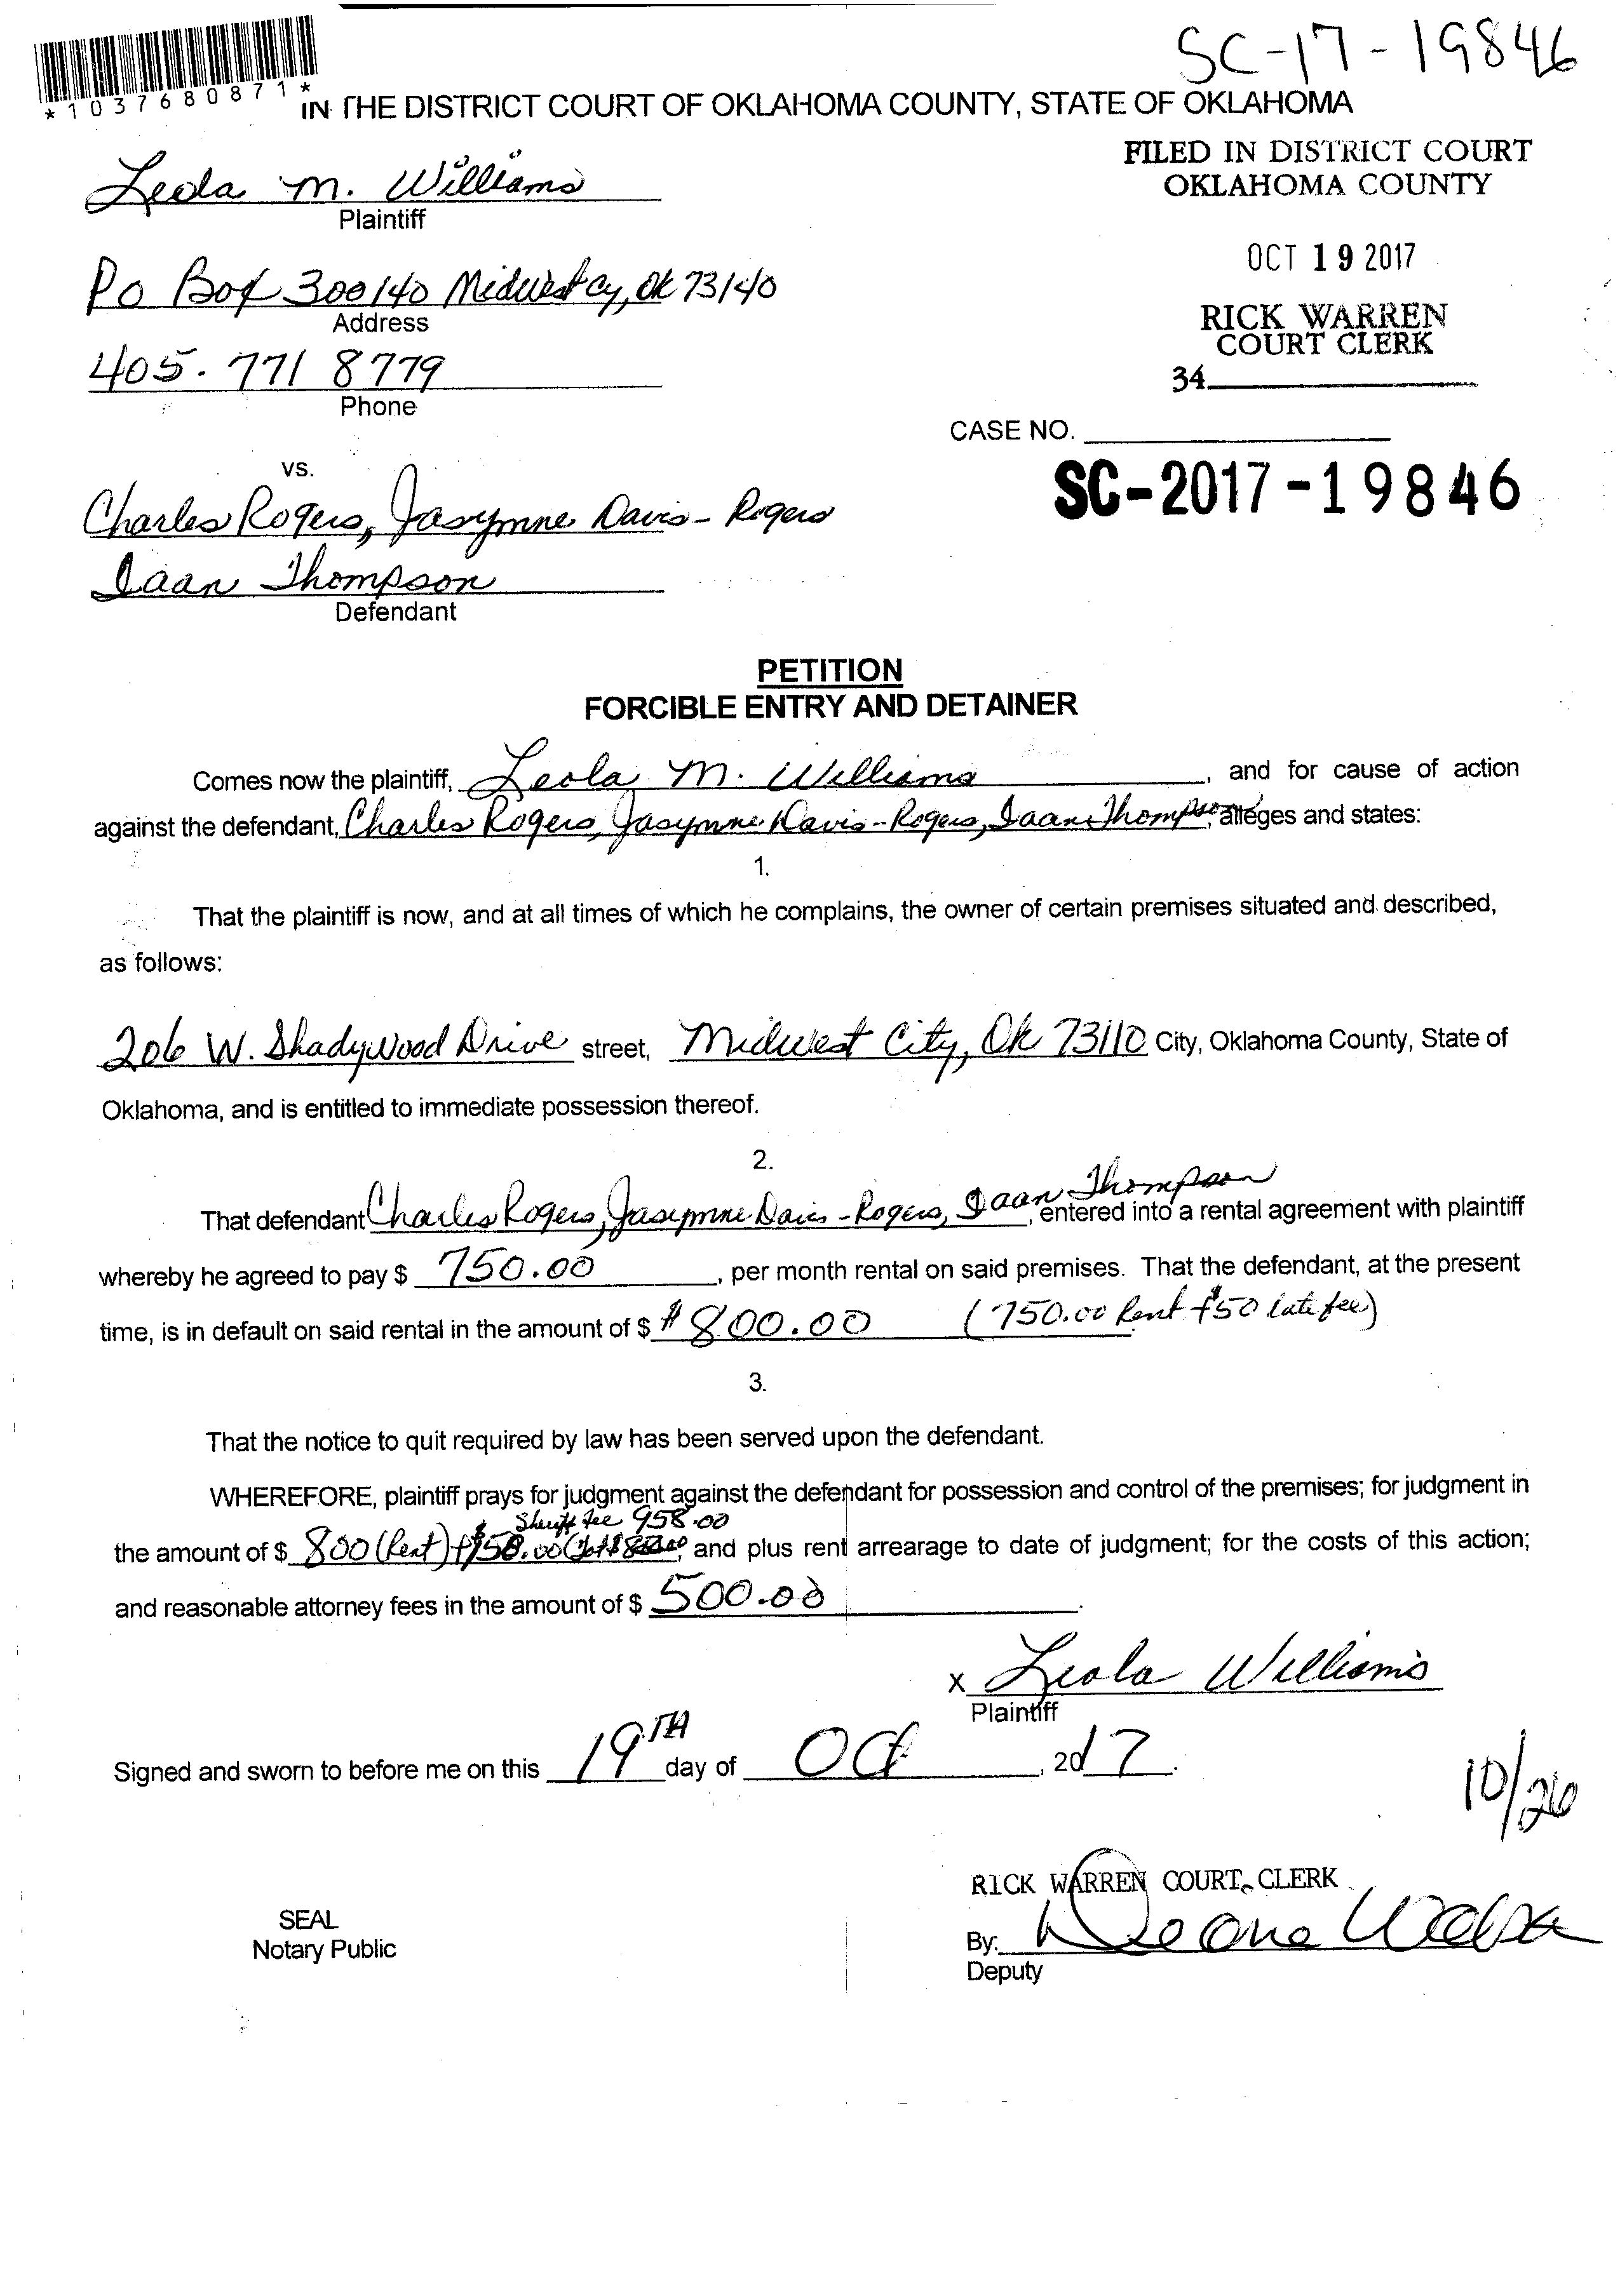 SC-17-19846
*1037680871*
IN THE DISTRICT COURT OF OKLAHOMA COUNTY, STATE OF OKLAHOMA
FILED IN DISTRICT COURT
OKLAHOMA COUNTY
Leola M. Williams
Plaintiff
OCT 19 2017
PO Box 300140 Midwest Cy, Ok 73140
Address
RICK WARREN
COURT CLERK
405. 771 8779
Phone
34
CASE NO.
SC-2017-19846
vs.
Charles Rogers, Jasymne Davis-Rogers
Iaan Thompson
Defendant
PETITION
FORCIBLE ENTRY AND DETAINER
Comes now the plaintiff, Leola M. Williams, and for cause of action
against the defendant, Charles Rogers, Jasymne Davis-Rogers, Iaan Thompson, alleges and states:
1.
That the plaintiff is now, and at all times of which he complains, the owner of certain premises situated and described,
as follows:
206 W. Shadywood Drive street, Midwest City, Ok 73110 City, Oklahoma County, State of
Oklahoma, and is entitled to immediate possession thereof.
2.
That defendant Charles Rogers, Jasymne Davis-Rogers, Iaan Thompson, entered into a rental agreement with plaintiff
whereby he agreed to pay $ 750.00, per month rental on said premises. That the defendant, at the present
time, is in default on said rental in the amount of $ $800.00 (750.00 Rent + $50 late fee)
3.
That the notice to quit required by law has been served upon the defendant.
WHEREFORE, plaintiff prays for judgment against the defendant for possession and control of the premises; for judgment in
Sheriff fee 958.00
the amount of $ 800 (Rent) + and plus rent arrearage to date of judgment; for the costs of this action;
and reasonable attorney fees in the amount of $ 500.00.
x Leola Williams
Plaintiff
Signed and sworn to before me on this 19TH day of Oct, 2017.
10/26
RICK WARREN COURT CLERK
SEAL
Notary Public
By:
Deputy